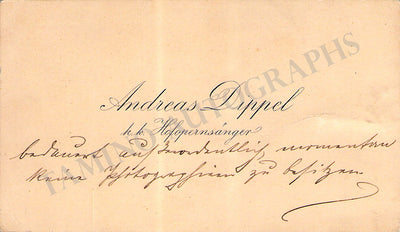 Andreas Dippel
k. k. Hofopernsänger
bedauert außerordentlich momentan
keine Photographieen zu besitzen
TAMINO AUTOGRAPHS